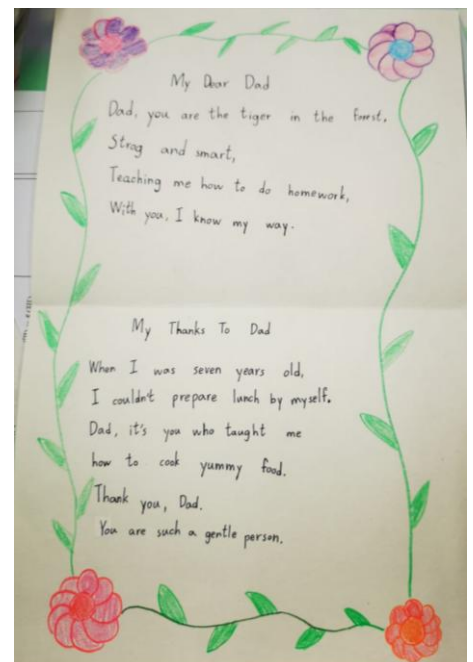 My Dear Dad
Dad, you are the tiger in the forrst.
Strog and smart,
Teaching me how to do homework,
With you, I know my way.
My Thanks To Dad
When I was seven years old,
I couldn't prepare lunch by myself.
Dad, it's you who taught me
how to cook yummy food.
Thank you, Dad.
You are such a gentle person.